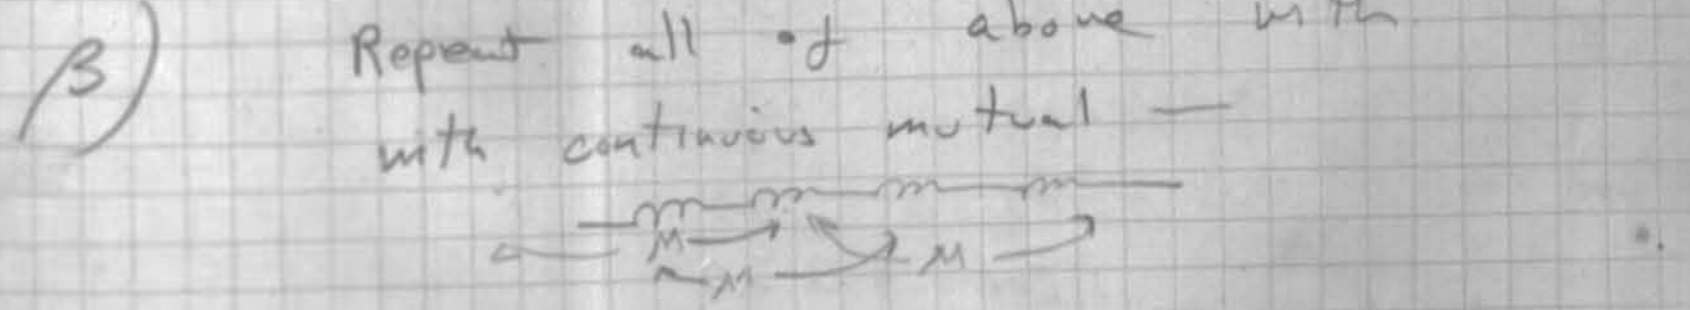 β) Repeat all of above with
with continuous mutual —
M M
M